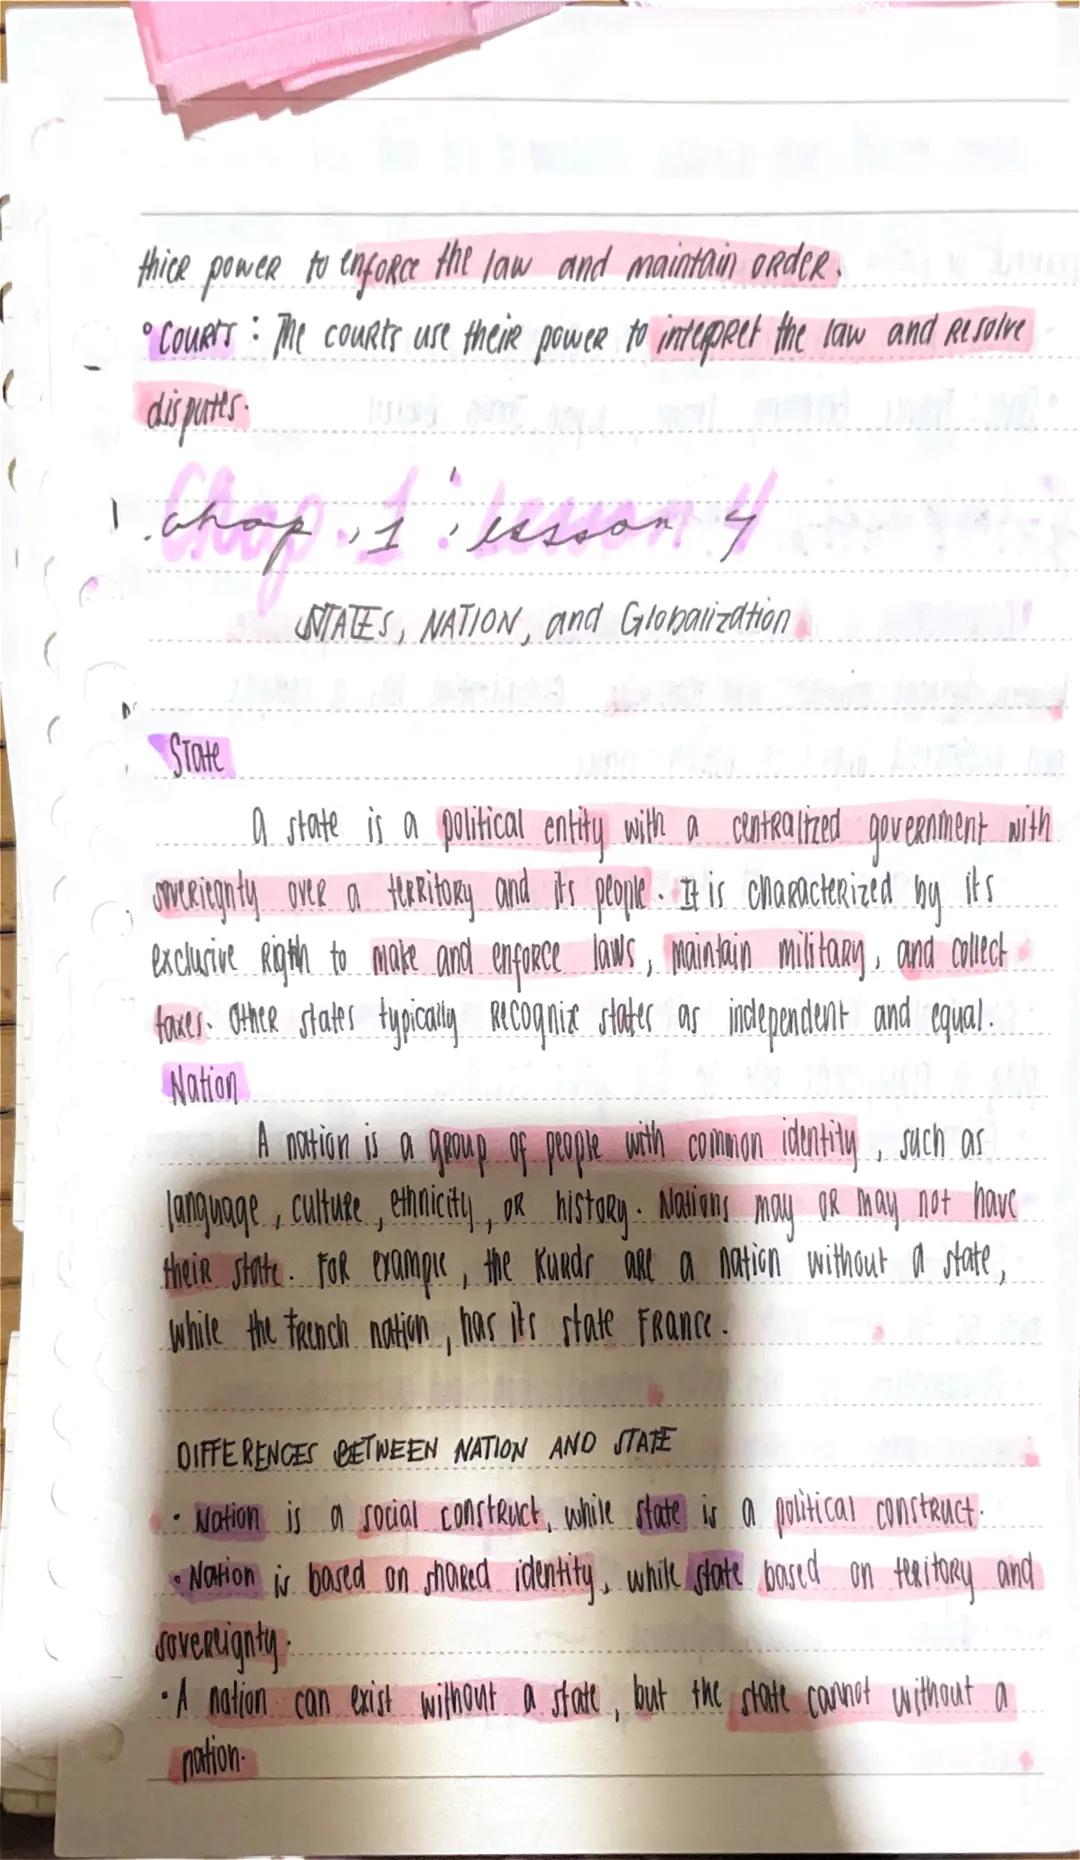 thier power to enforce the law and maintain order.
° Courts : The courts use their power to interpret the law and resolve
disputes.
Chap. 1 : lesson 4
STATES, NATION, and Globalization
State
A state is a political entity with a centralized government with
sovereignty over a territory and its people. It is characterized by its
exclusive rigth to make and enforce laws, maintain military, and collect
taxes. Other states typically recognize states as independent and equal.
Nation
A nation is a group of people with common identity, such as
language, culture, ethnicity, or history. Nations may or may not have
their state. For example, the Kurds are a nation without a state,
while the French nation, has its state France.
DIFFERENCES BETWEEN NATION AND STATE
• Nation is a social construct, while state is a political construct.
• Nation is based on shared identity, while state based on teritory and
sovereignty.
• A nation can exist without a state, but the state cannot without a
nation.